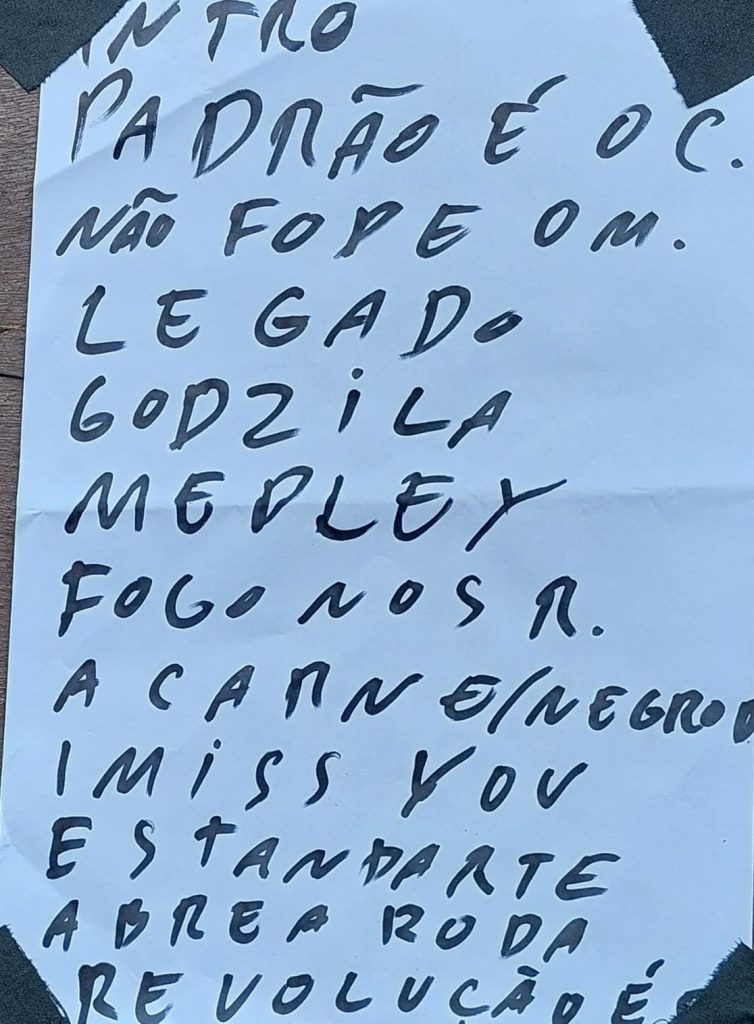 INTRO
PADRÃO É O C.
NÃO FODE OM.
LEGADO
GODZiLA
MEDLEY
FOGO NOS R.
A CARNE/NEGRO D
I MiSS YOU
ESTANDARTE
ABRE A RODA
REVOLUÇÃO É